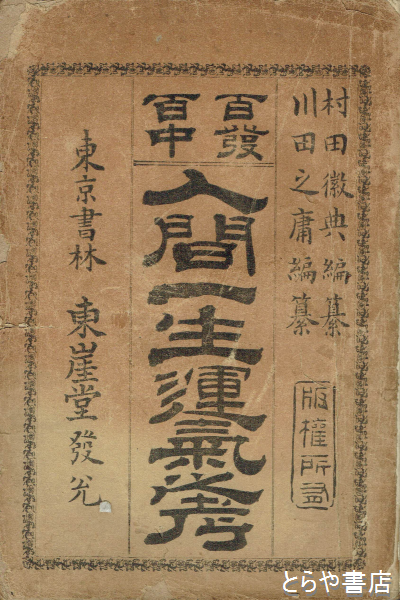 村田徽典編纂
川田之庸編纂
版權所有
百發
百中
人間一生運氣考
東京書林 東崖堂發兌
とらや書店